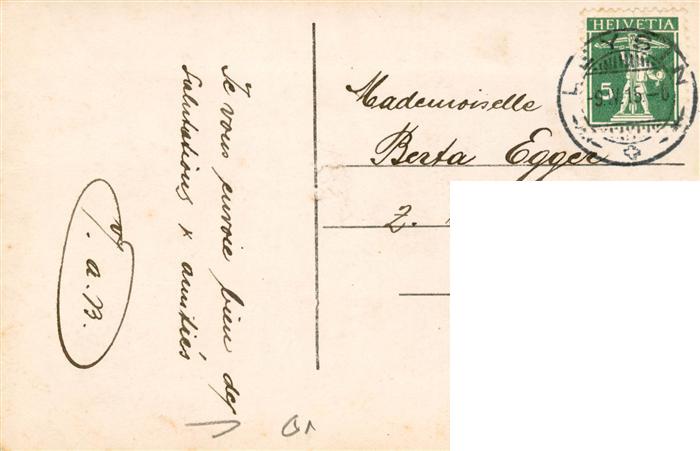 Je vous envoie bien des
salutations & amitiés
J. a. B.
HELVETIA
5
LEYSIN
Mademoiselle
Berta Egger
Z.